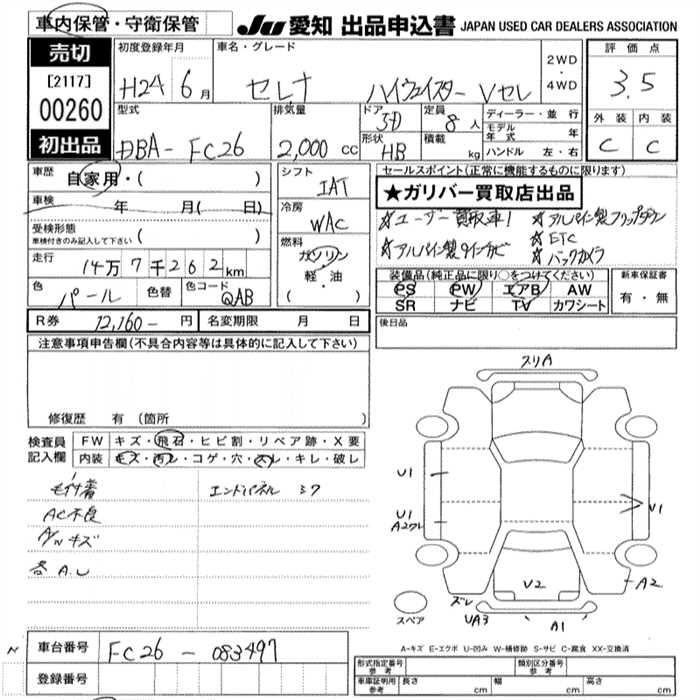 車内保管・守衛保管
JU 愛知 出品申込書 JAPAN USED CAR DEALERS ASSOCIATION
売切
[2117]
00260
初出品
初度登録年月
H24 6月
車名・グレード
セレナ ハイウェイスター Vセレ
2WD
・
4WD
評価点
3.5
外装 内装
C C
型式
DBA-FC26
排気量
2,000 cc
ドア
5D
形状
HB
定員
8人
積載
kg
ディーラー・並行
モデル年式 年
ハンドル 左・右
車歴
自家用・( )
車検 年 月( 日)
受検形態
車検付きのみ記入して下さい ( )
走行
14万7千262km
色
パール
色替
色コード
QAB
シフト
IAT
冷房
WAC
燃料
ガソリン
軽・油
( )
セールスポイント(正常に機能するものに限ります)
★ガリバー買取店出品
☆ユーザー買取車! ☆アルパイン製フリップダウン
☆アルパイン製9インチナビ ☆ETC
☆バックカメラ
装備品(純正品に限り○をつけてください)
PS PW エアB AW
SR ナビ TV カワシート
新車保証書
有・無
R券 12,160- 円 名変期限 月 日
後日品
注意事項申告欄(不具合内容等は具体的に記入して下さい)
修復歴 有(箇所 )
検査員記入欄
FW キズ・飛石・ヒビ割・リペア跡・X要
内装 キズ・汚レ・コゲ・穴・スレ・キレ・破レ
毛付着 エンドパネル シワ
AC不良
A/Wキズ
各A.U
スリA
U1
U1
V1
V2
A2
ズレ
UA3
A1
スペア
A-キズ E-エクボ U-凹み W-補修跡 S-サビ C-腐食 XX-交換済
N
車台番号 FC26-083497
登録番号
形式指定番号 参考
類別区分番号 参考
車庫証明用 参考 長さ cm 幅 cm 高さ cm